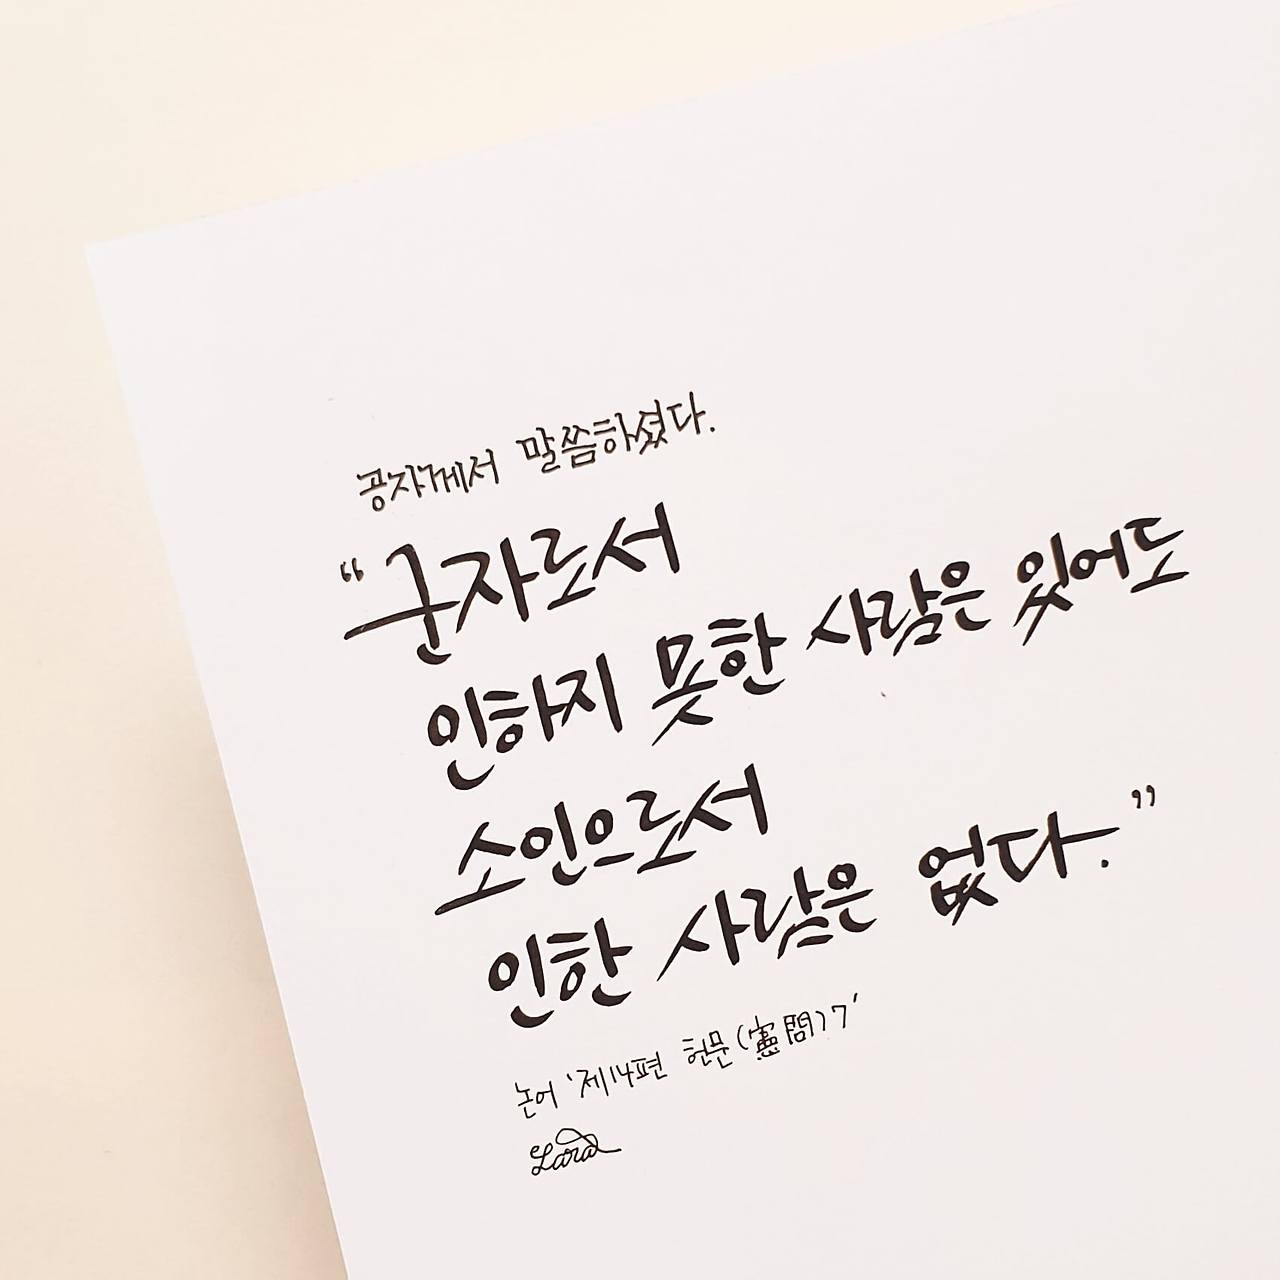 공자께서 말씀하셨다.
“군자로서
인하지 못한 사람은 있어도
소인으로서
인한 사람은 없다.”
논어 ‘제14편 헌문(憲問)7’
Lara